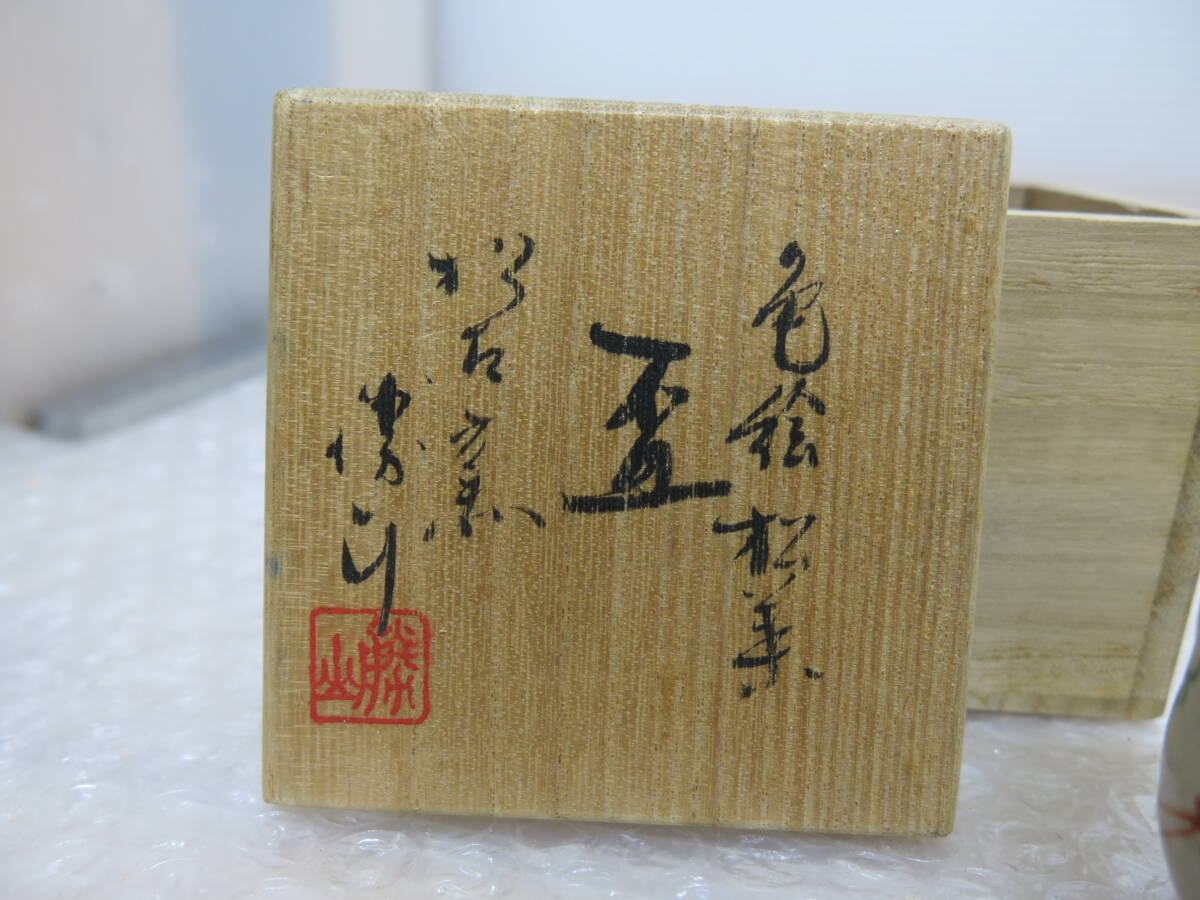 色絵松葉
盃
松古窯
勝山
勝山